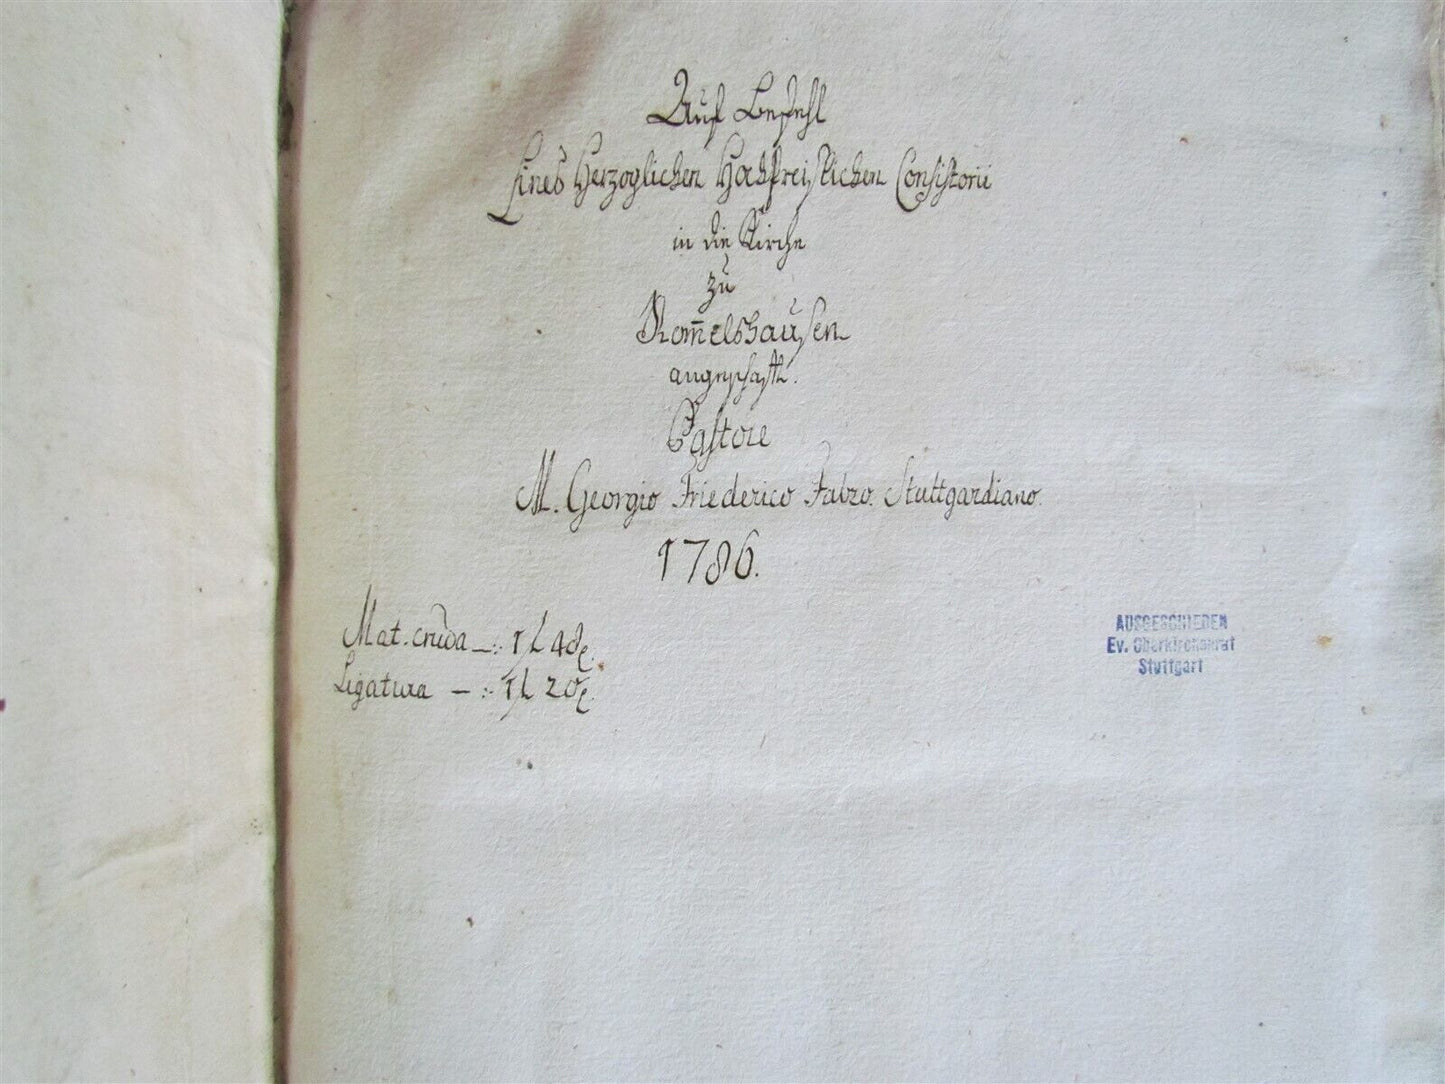 Auf Befehl
Eines Herzoglichen Hochpreißlichen Consistorii
in die Kirche
zu
Rom̄elshausen
angeschafft.
Pastore
M. Georgio Friederico Fabro. Stuttgardiano.
1786.
Mat. cruda —:. 1 f. 48
Ligatura — :. 1 f. 20
AUSGESCHIEDEN
Ev. Oberkirchenrat
Stuttgart